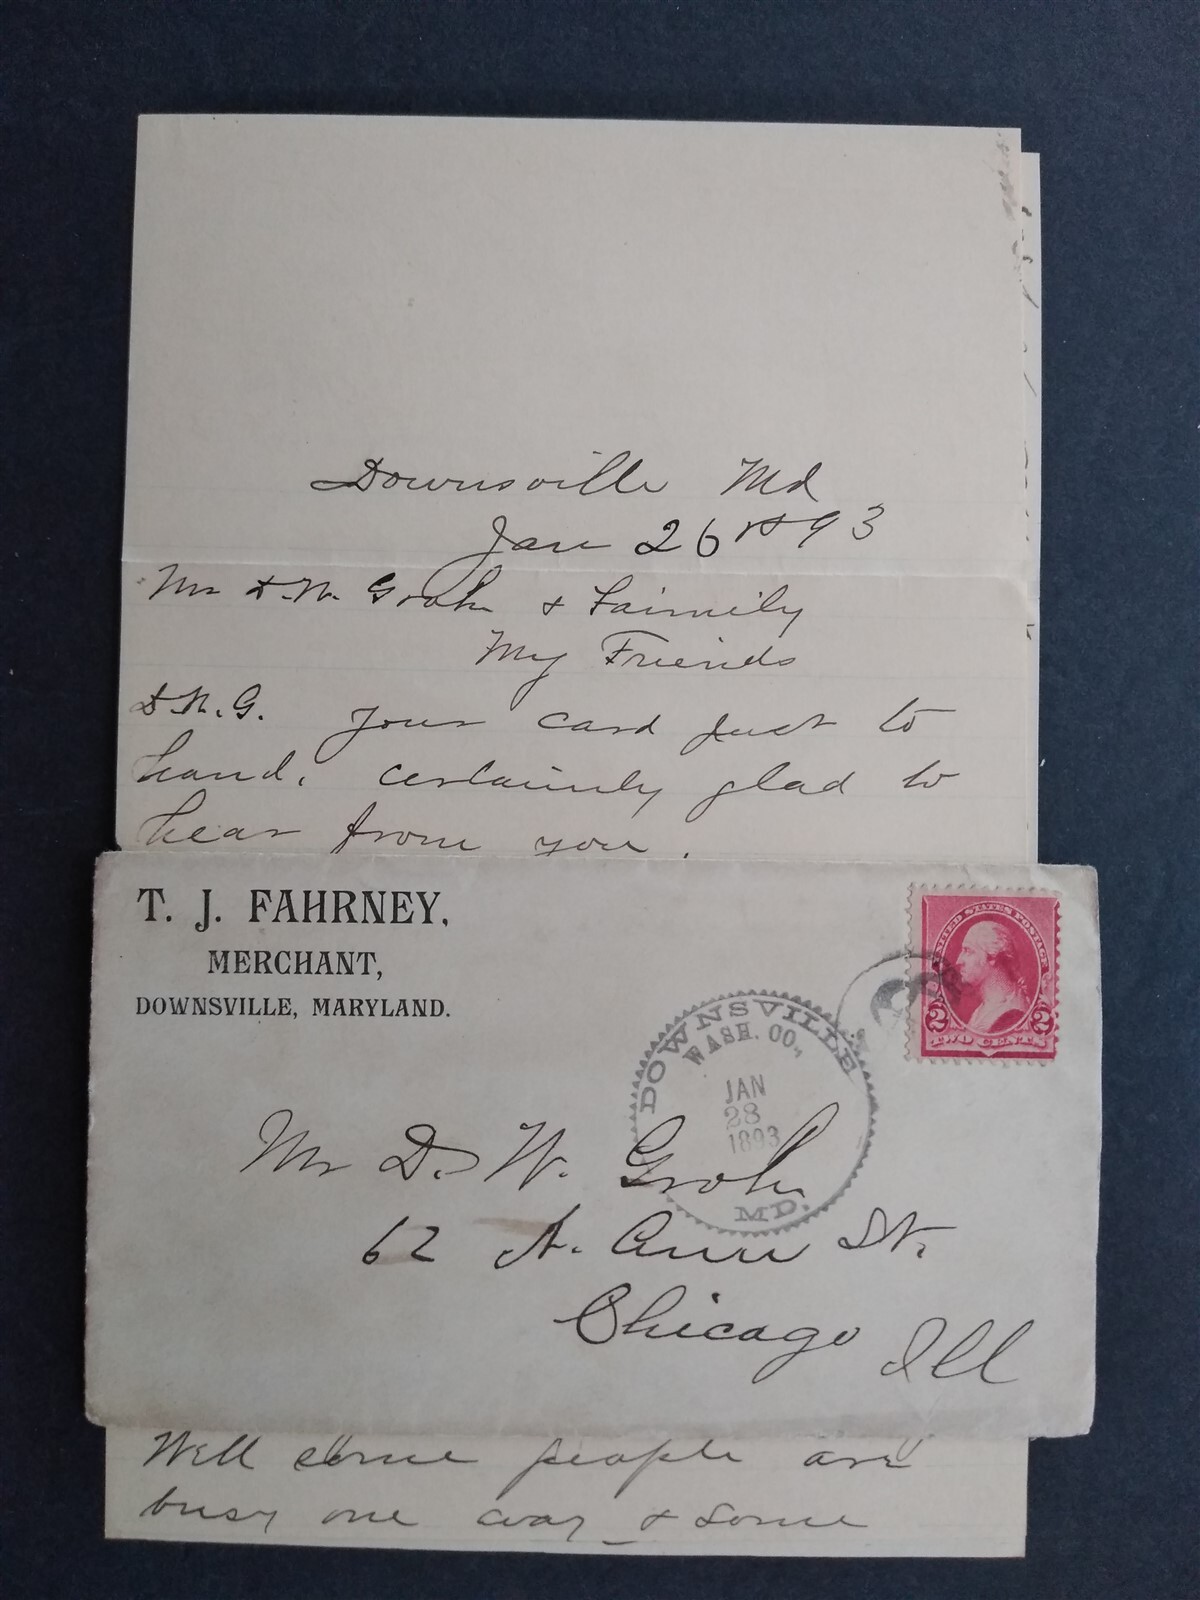 Downsville Md
Jan 26 1893
Mr D.W. Groh & Faimily
My Friends
D.W.G. your card just to
hand. certainly glad to
hear from you.
T. J. FAHRNEY,
MERCHANT,
DOWNSVILLE, MARYLAND.
UNITED STATES POSTAGE
2 2
TWO CENTS
DOWNSVILLE
WASH. CO.,
JAN
28
1893
MD.
Mr D. W. Groh
62 N. Ann St.
Chicago Ill
Well some people are
busy one way & some